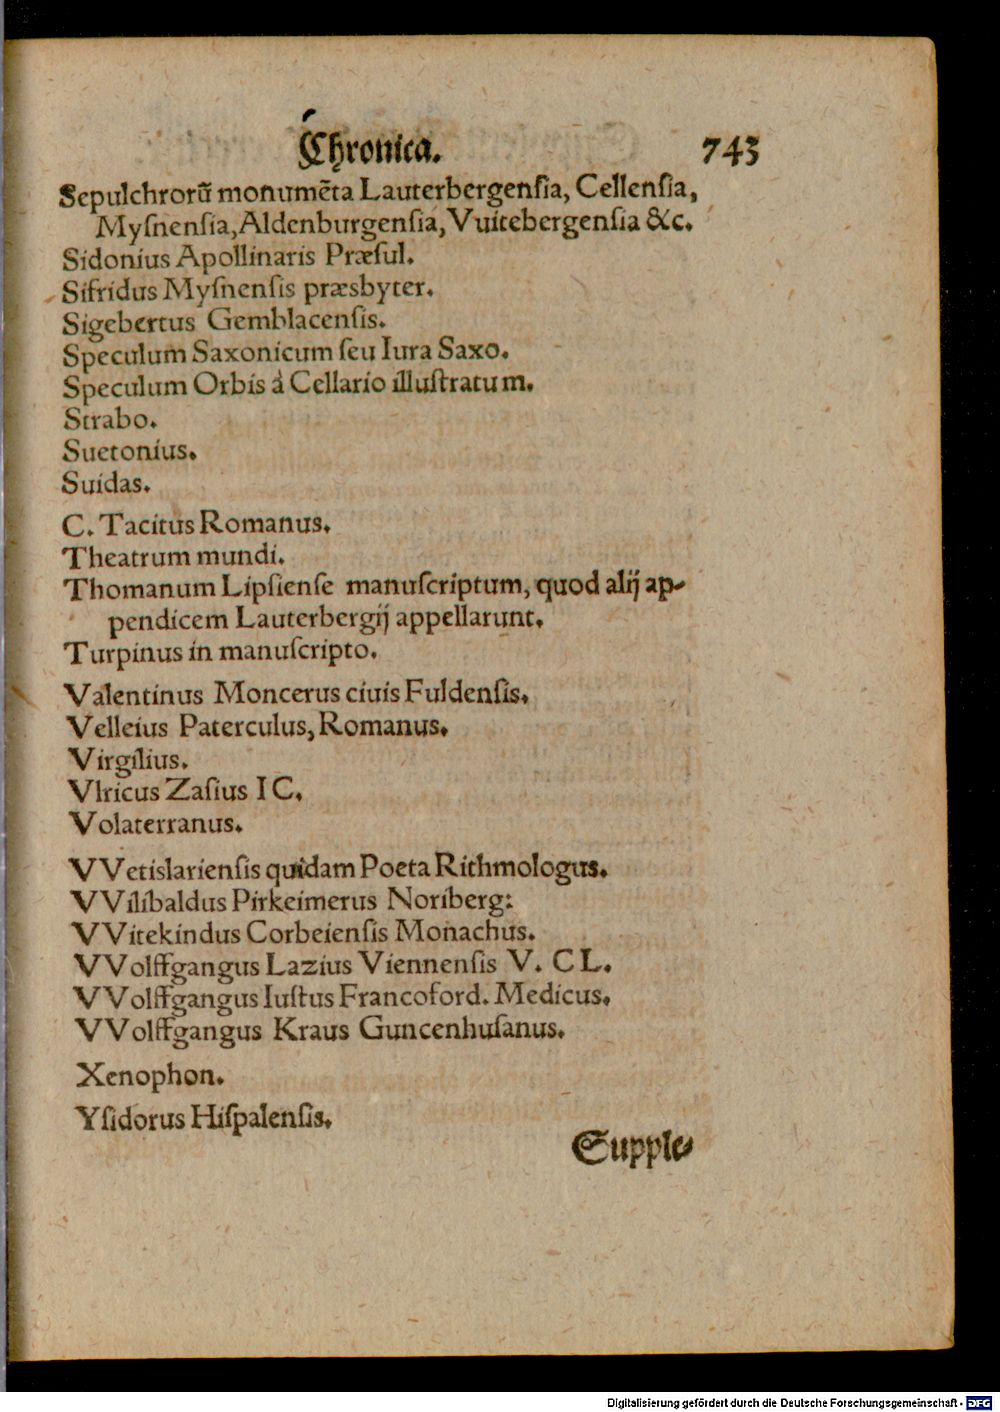 Chronica. 743
Sepulchrorũ monumẽta Lauterbergenſia, Cellenſia,
Myſnenſia, Aldenburgenſia, Vuitebergenſia &c.
Sidonius Apollinaris Præſul.
Sifridus Myſnenſis præsbyter.
Sigebertus Gemblacenſis.
Speculum Saxonicum ſeu Iura Saxo.
Speculum Orbis à Cellario illuſtratum.
Strabo.
Suetonius.
Suidas.
C. Tacitus Romanus.
Theatrum mundi.
Thomanum Lipſienſe manuſcriptum, quod alij ap-
pendicem Lauterbergij appellarunt.
Turpinus in manuſcripto.
Valentinus Moncerus ciuis Fuldenſis.
Velleius Paterculus, Romanus.
Virgilius.
Vlricus Zaſius IC.
Volaterranus.
VVetislarienſis quidam Poeta Rithmologus.
VVilibaldus Pirkeimerus Noriberg:
VVitekindus Corbeienſis Monachus.
VVolffgangus Lazius Viennenſis V. CL.
VVolffgangus Iuſtus Francoford. Medicus.
VVolffgangus Kraus Guncenhuſanus.
Xenophon.
Yſidorus Hiſpalenſis.
Supple-
Digitalisierung gefördert durch die Deutsche Forschungsgemeinschaft - DFG